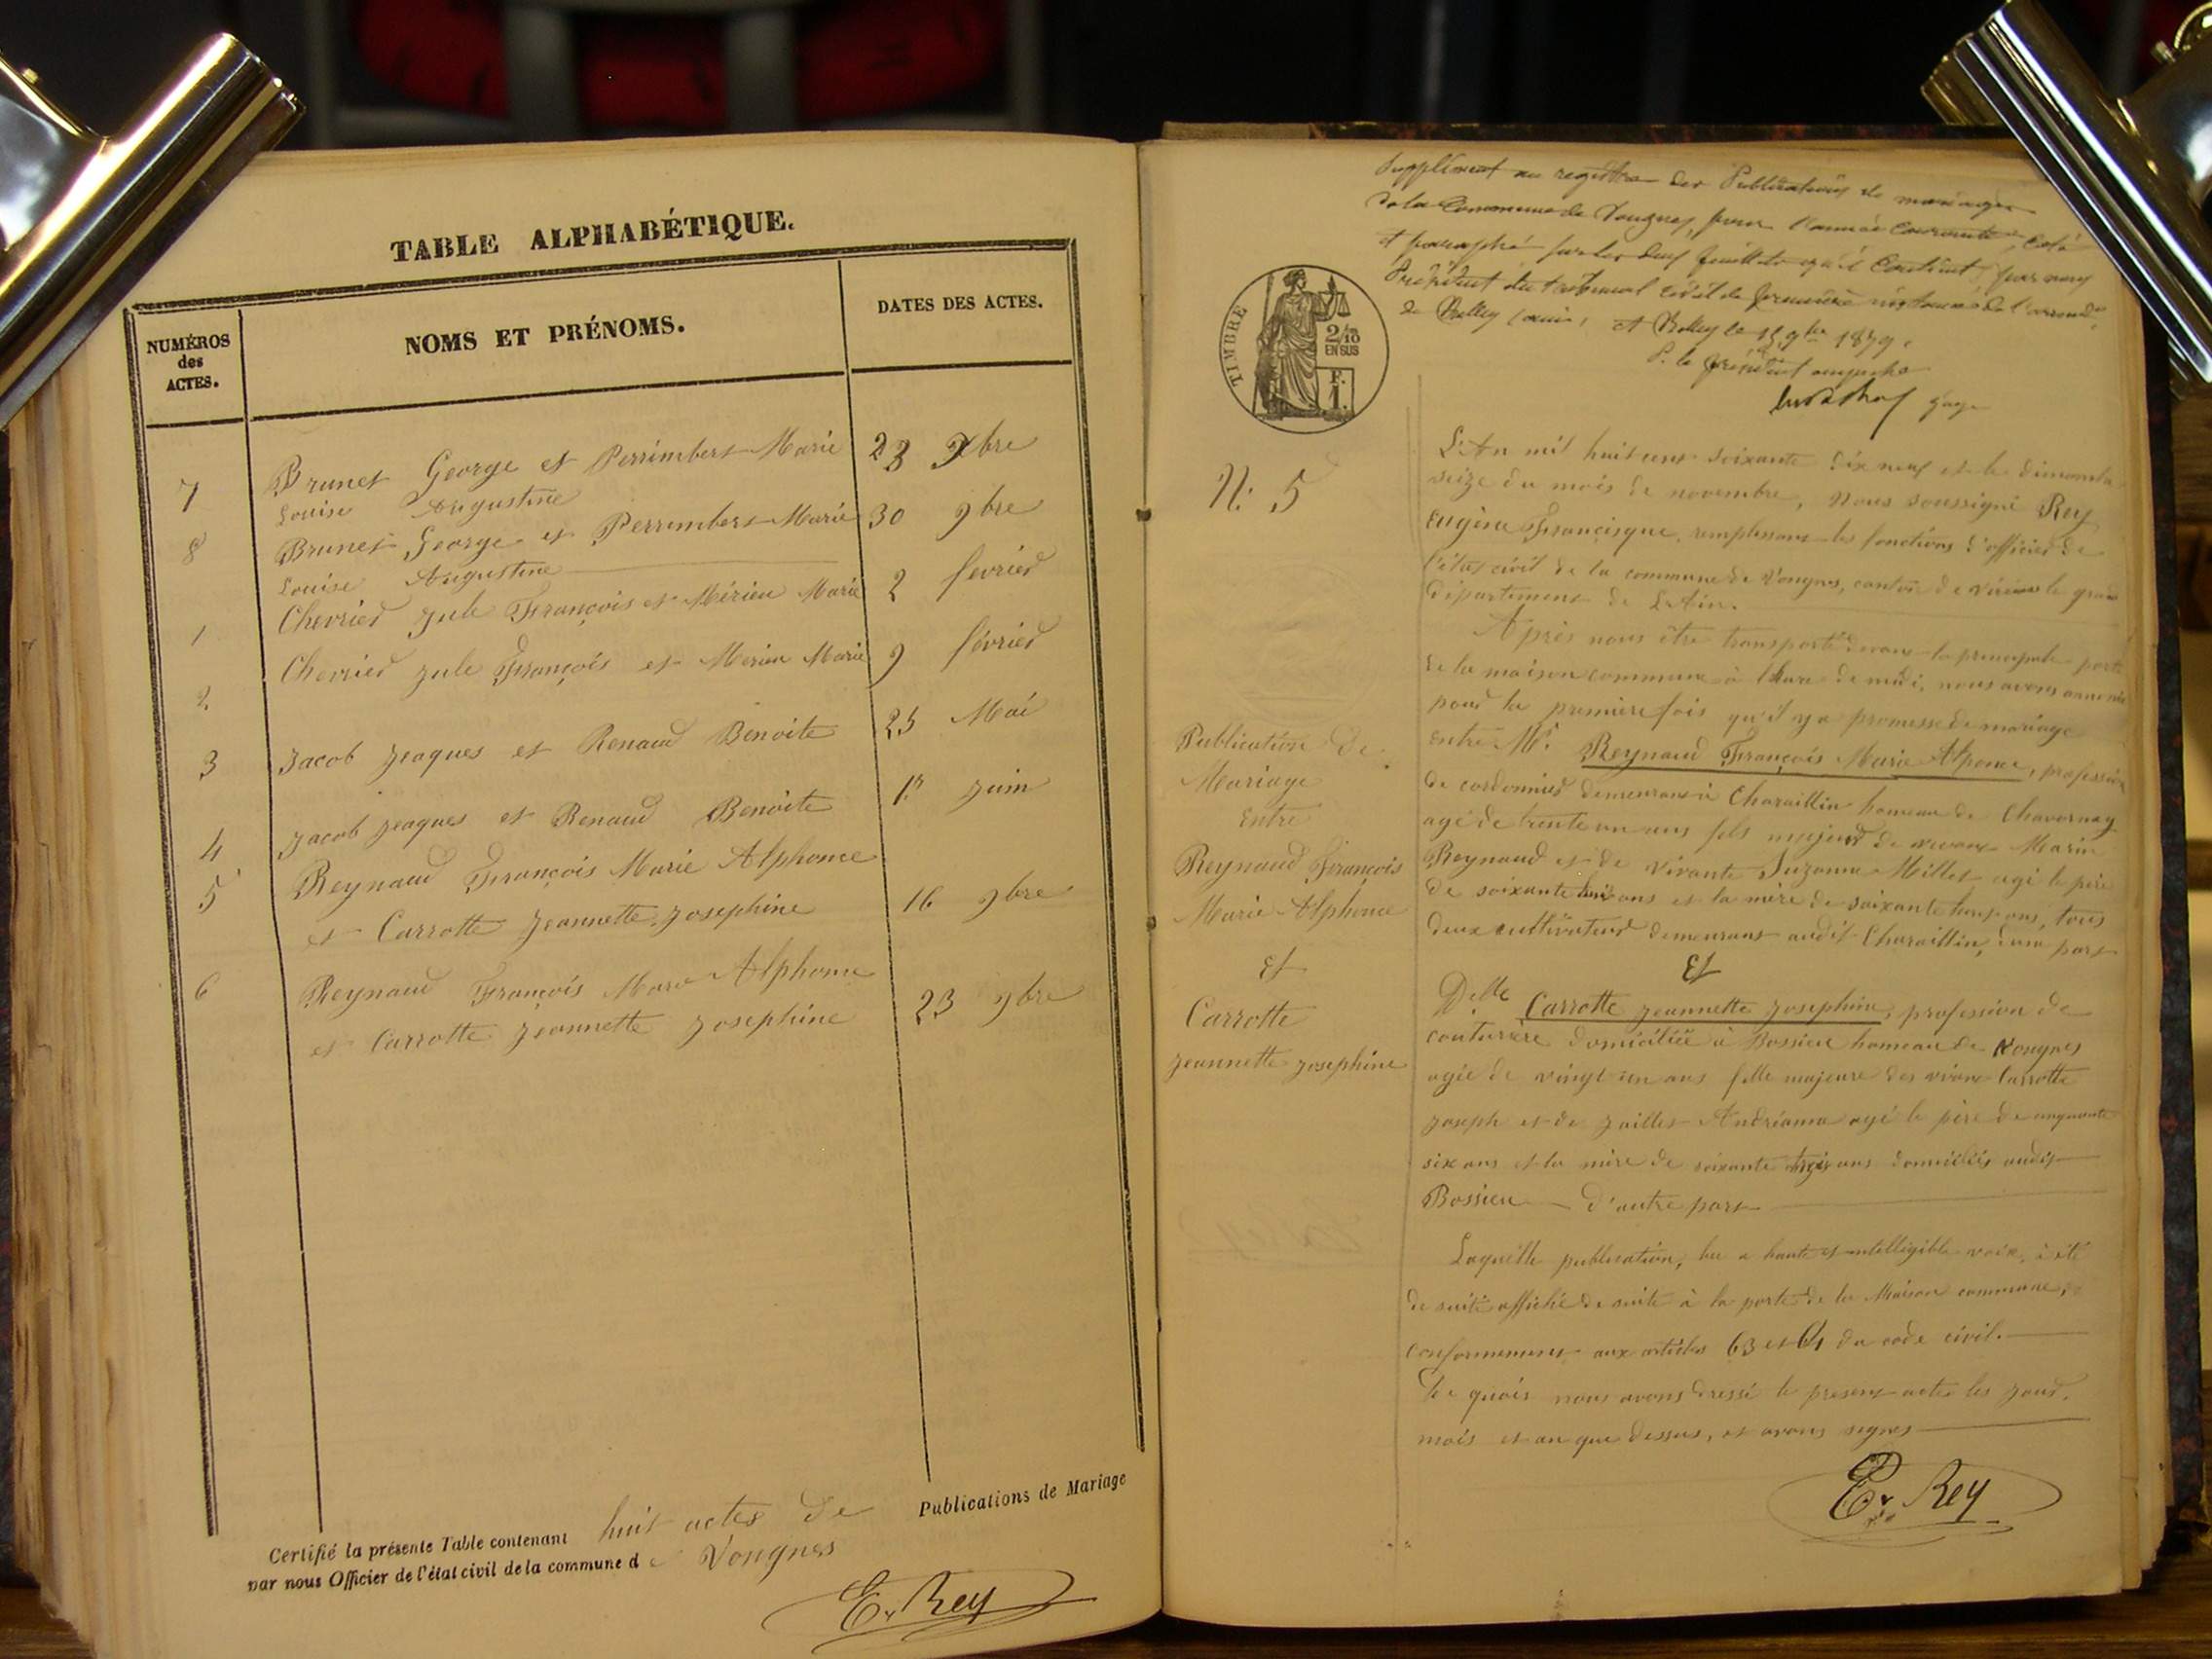 TABLE ALPHABÉTIQUE.
NUMÉROS
des
ACTES.
NOMS ET PRÉNOMS.
DATES DES ACTES.
7 Brunet George et Perrimbert Marie 23 9bre
Louise Augustine
8 Brunet George et Perrimbert Marie 30 9bre
Louise Augustine
1 Chevrier Jule François et Mérieu Marie 2 fevrier
2 Chevrier Jule François et Merieu Marie 9 février
3 Jacob Jeaques et Renaud Benoite 25 Mai
4 Jacob Jeaques et Renaud Benoite 1er Juin
5 Reynaud François Marie Alphonce
et Carrotte Jeannette Josephine 16 9bre
6 Reynaud François Marie Alphonce
et Carrotte Jeannette Josephine 23 9bre
Certifié la présente Table contenant huit actes de Publications de Mariage
par nous Officier de l'état civil de la commune de Vongnes
E. Rey
Supplément au registre des Publications de mariages
de la Commune de Vongnes, pour l'année courante, coté
et paraphé sur les deux feuillets qu'il contient, par nous
Président du tribunal civil de première instance de l'arrondt
de Belley (ain), A Belley le 15 9bre 1879.
P. le président empêché
TIMBRE
2/10
EN SUS
F.
1.
N: 5
Publication de
Mariage
Entre
Reynaud François
Marie Alphonce
Et
Carrotte
Jeannette Josephine
L'An mil huit cent soixante dix neuf et le dimanche
seize du mois de novembre, Nous soussigné Rey
Eugène Françisque, remplissant les fonctions d'officier de
l'état civil de la commune de Vongnes, canton de Virieu le grand
département de L'Ain.
Après nous être transporté devant la principale porte
de la maison commune à l'heure de midi, nous avons annoncé
pour la première fois qu'il y a promesse de mariage
entre Mr. Reynaud François Marie Alponce, profession
de cordonnier demeurant à Charaillin hameau de Chavornay
agé de trente un ans fils majeur de vivant Marin
Reynaud et de vivante Suzanne Millet agé le père
de soixante huit ans et la mère de soixante ans, tous
deux cultivateur demeurant audit Charaillin, d'une part
Et
Delle Carrotte Jeannette Josephine, profession de
couturière domiciliée à Bossieu hameau de Vongnes
agée de vingt un ans fille majeure des vivant Carrotte
Joseph et de Jaillet Andréanne agé le père de cinquante
six ans et la mère de soixante trois ans domiciliés audit
Bossieu d'autre part
Laquelle publication, lue a haute et intelligible voix, à été
de suite affiché de suite à la porte de la Maison commune,
conformement aux articles 63 et 64 du code civil.
De quois nous avons dressé le present acte les jour,
mois et an que dessus, et avons signés
E. Rey